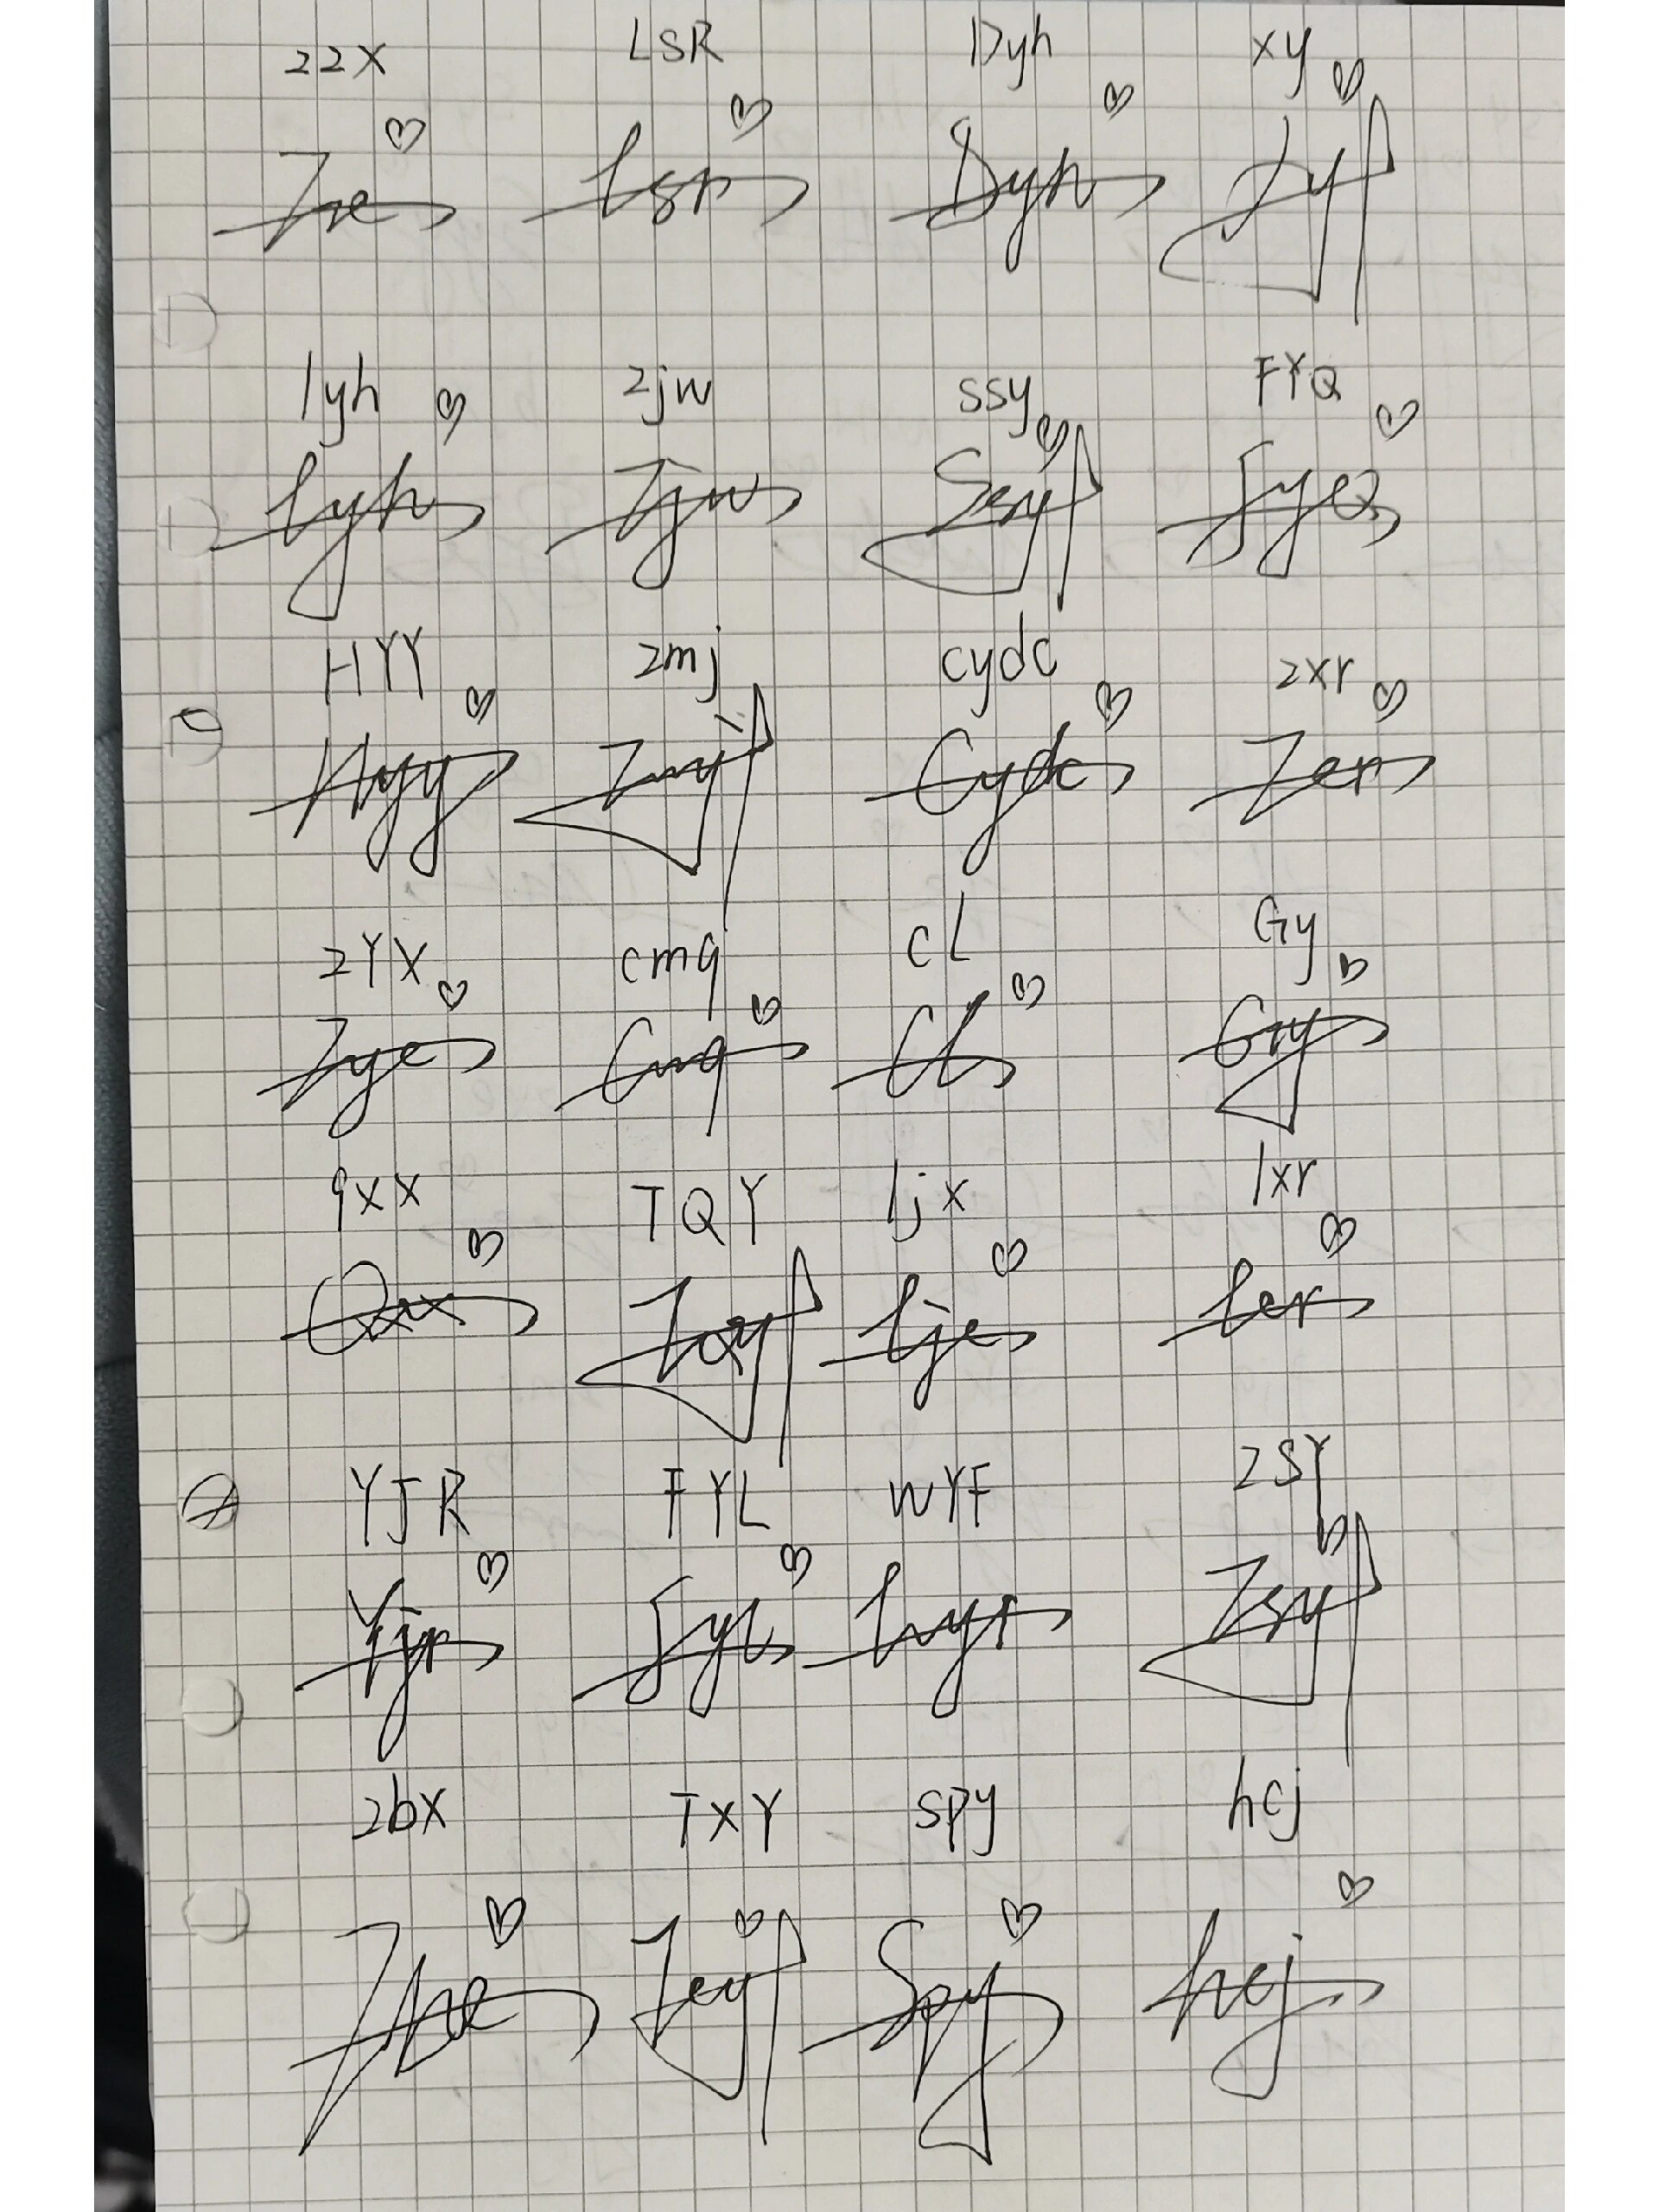 zzx LSR Dyh xy
Zxe Lsr Dyh Xy
lyh zjw ssy FYQ
Lyh Zjw Ssy Fyq
HYY zmj cydc zxr
Hyy Zmj Cydc Zxr
ZYX cmq CL Gy
Zyx Cmq CL Gy
qxx TQY ljx lxr
Qxx Tqy Ljx Lxr
YJR FYL WYF ZSY
Yjr Fyl Wyf Zsy
zbx TXY spy hcj
Zbx Txy Spy hcj